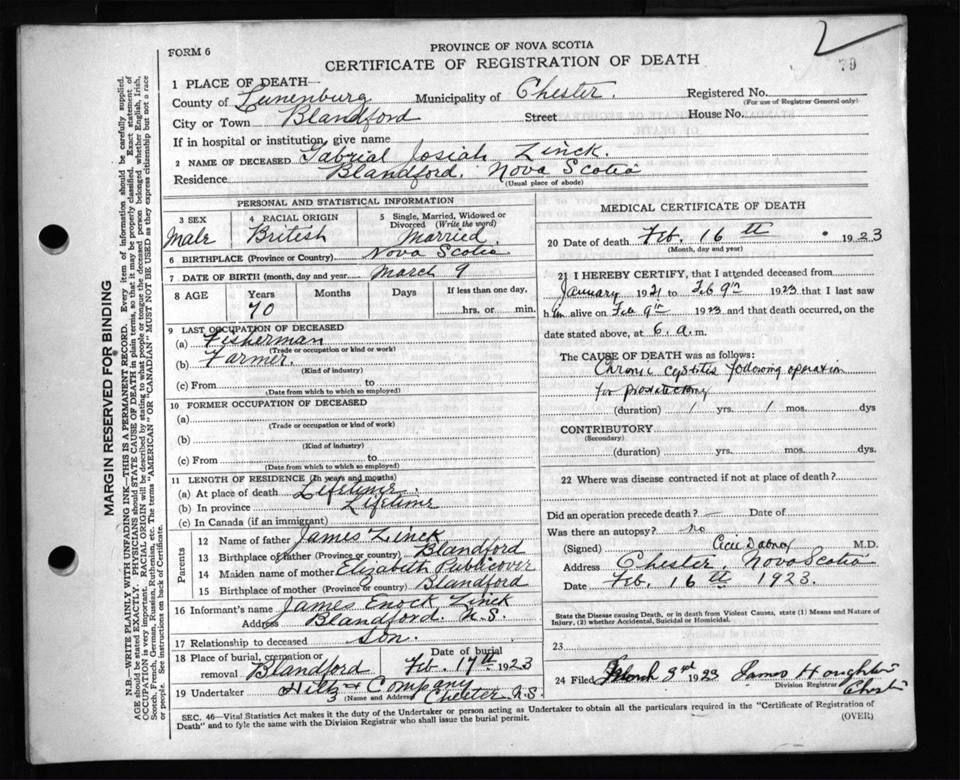 2
79
FORM 6
PROVINCE OF NOVA SCOTIA
CERTIFICATE OF REGISTRATION OF DEATH
1 PLACE OF DEATH—
County of Lunenburg Municipality of Chester. Registered No.
(For use of Registrar General only)
City or Town Blandford Street House No.
If in hospital or institution, give name
2 NAME OF DECEASED Gabrial Josiah Zinck.
Residence Blandford. Nova Scotia
(Usual place of abode)
PERSONAL AND STATISTICAL INFORMATION
3 SEX
Male
4 RACIAL ORIGIN
British
5 Single, Married, Widowed or Divorced (Write the word)
Married.
6 BIRTHPLACE (Province or Country) Nova Scotia
7 DATE OF BIRTH (month, day and year) March 9
8 AGE Years Months Days If less than one day,
70 hrs. or min.
9 LAST OCCUPATION OF DECEASED
(a) Fisherman
(Trade or occupation or kind or work)
(b) Farmer.
(Kind of industry)
(c) From to
(Date from which to which so employed)
10 FORMER OCCUPATION OF DECEASED
(a)
(Trade or occupation or kind of work)
(b)
(Kind of industry)
(c) From to
(Date from which to which so employed)
11 LENGTH OF RESIDENCE (In years and months)
(a) At place of death Lifetime.
(b) In province Lifetime
(c) In Canada (if an immigrant)
Parents
12 Name of father James Zinck
13 Birthplace of father (Province or country) Blandford
14 Maiden name of mother Elizabeth Publicover
15 Birthplace of mother (Province or country) Blandford
16 Informant's name James Enock Zinck
Address Blandford. N.S.
17 Relationship to deceased Son.
18 Place of burial, cremation or removal Blandford Date of burial Feb. 17th 1923
19 Undertaker Hiltz & Company
(Name and Address) Chester N.S.
MEDICAL CERTIFICATE OF DEATH
20 Date of death Feb. 16th 1923
(Month, day and year)
21 I HEREBY CERTIFY, that I attended deceased from
January 1921 to Feb 9th 1923 that I last saw
him alive on Feb 9th 1923 and that death occurred, on the
date stated above, at 6 a.m.
The CAUSE OF DEATH was as follows:
Chronic cystitis following operation
for prostatectomy
(duration) 1 yrs. 1 mos. dys
CONTRIBUTORY
(Secondary)
(duration) yrs. mos. dys.
22 Where was disease contracted if not at place of death?
Did an operation precede death? — Date of
Was there an autopsy? no
(Signed) M.D.
Address Chester, Nova Scotia
Date Feb. 16th 1923.
State the Disease causing Death, or in death from Violent Causes, state (1) Means and Nature of
Injury, (2) whether Accidental, Suicidal or Homicidal.
23
24 Filed March 3rd 1923 James Houghton
Division Registrar Chester
SEC. 46—Vital Statistics Act makes it the duty of the Undertaker or person acting as Undertaker to obtain all the particulars required in the "Certificate of Registration of
Death" and to fyle the same with the Division Registrar who shall issue the burial permit.
(OVER)
MARGIN RESERVED FOR BINDING
N.B.—WRITE PLAINLY WITH UNFADING INK—THIS IS A PERMANENT RECORD. Every item of information should be carefully supplied.
AGE should be stated EXACTLY. PHYSICIANS should STATE CAUSE OF DEATH in plain terms, so that it may be properly classified. Exact statement of
OCCUPATION is very important. RACIAL ORIGIN will be described by stating to what people or tongue the deceased person belonged whether English, Irish,
Scotch, French, German, Russian, Ruthenian, etc. The terms "AMERICAN" or "CANADIAN" MUST NOT BE USED as they express citizenship but not a race
or people. See instructions on back of Certificate.